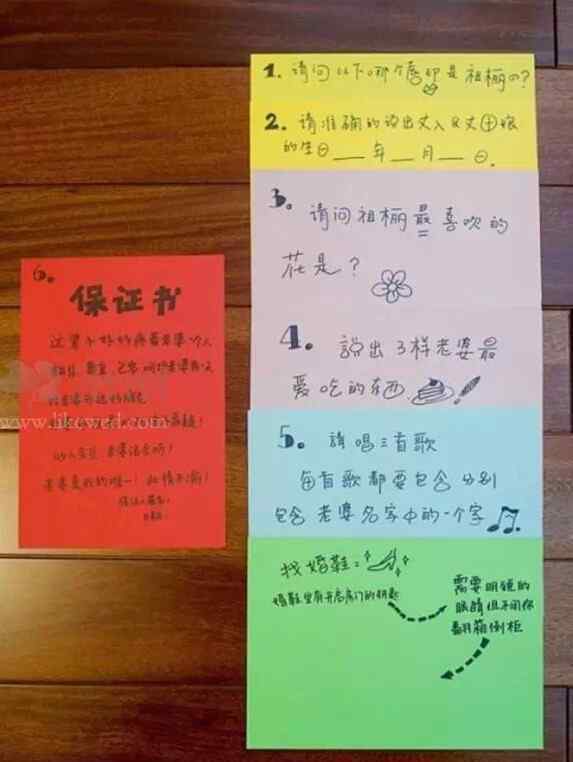 1. 请问以下哪个唇印是祖栭的?
2. 请准确的说出丈人及丈母娘
的生日___年___月___日.
3. 请问祖栭最喜欢的
花是?
4. 说出3样老婆最
爱吃的东西
5. 请唱三首歌
每首歌都要包含分别
包含老婆名字中的一个字
找婚鞋:
婚鞋里有开启房门的钥匙
需要明镜的
眼睛但不用你
翻箱倒柜
6.
保证书
这辈子好好疼爱老婆
www.likewed.com
老婆是我的唯一!